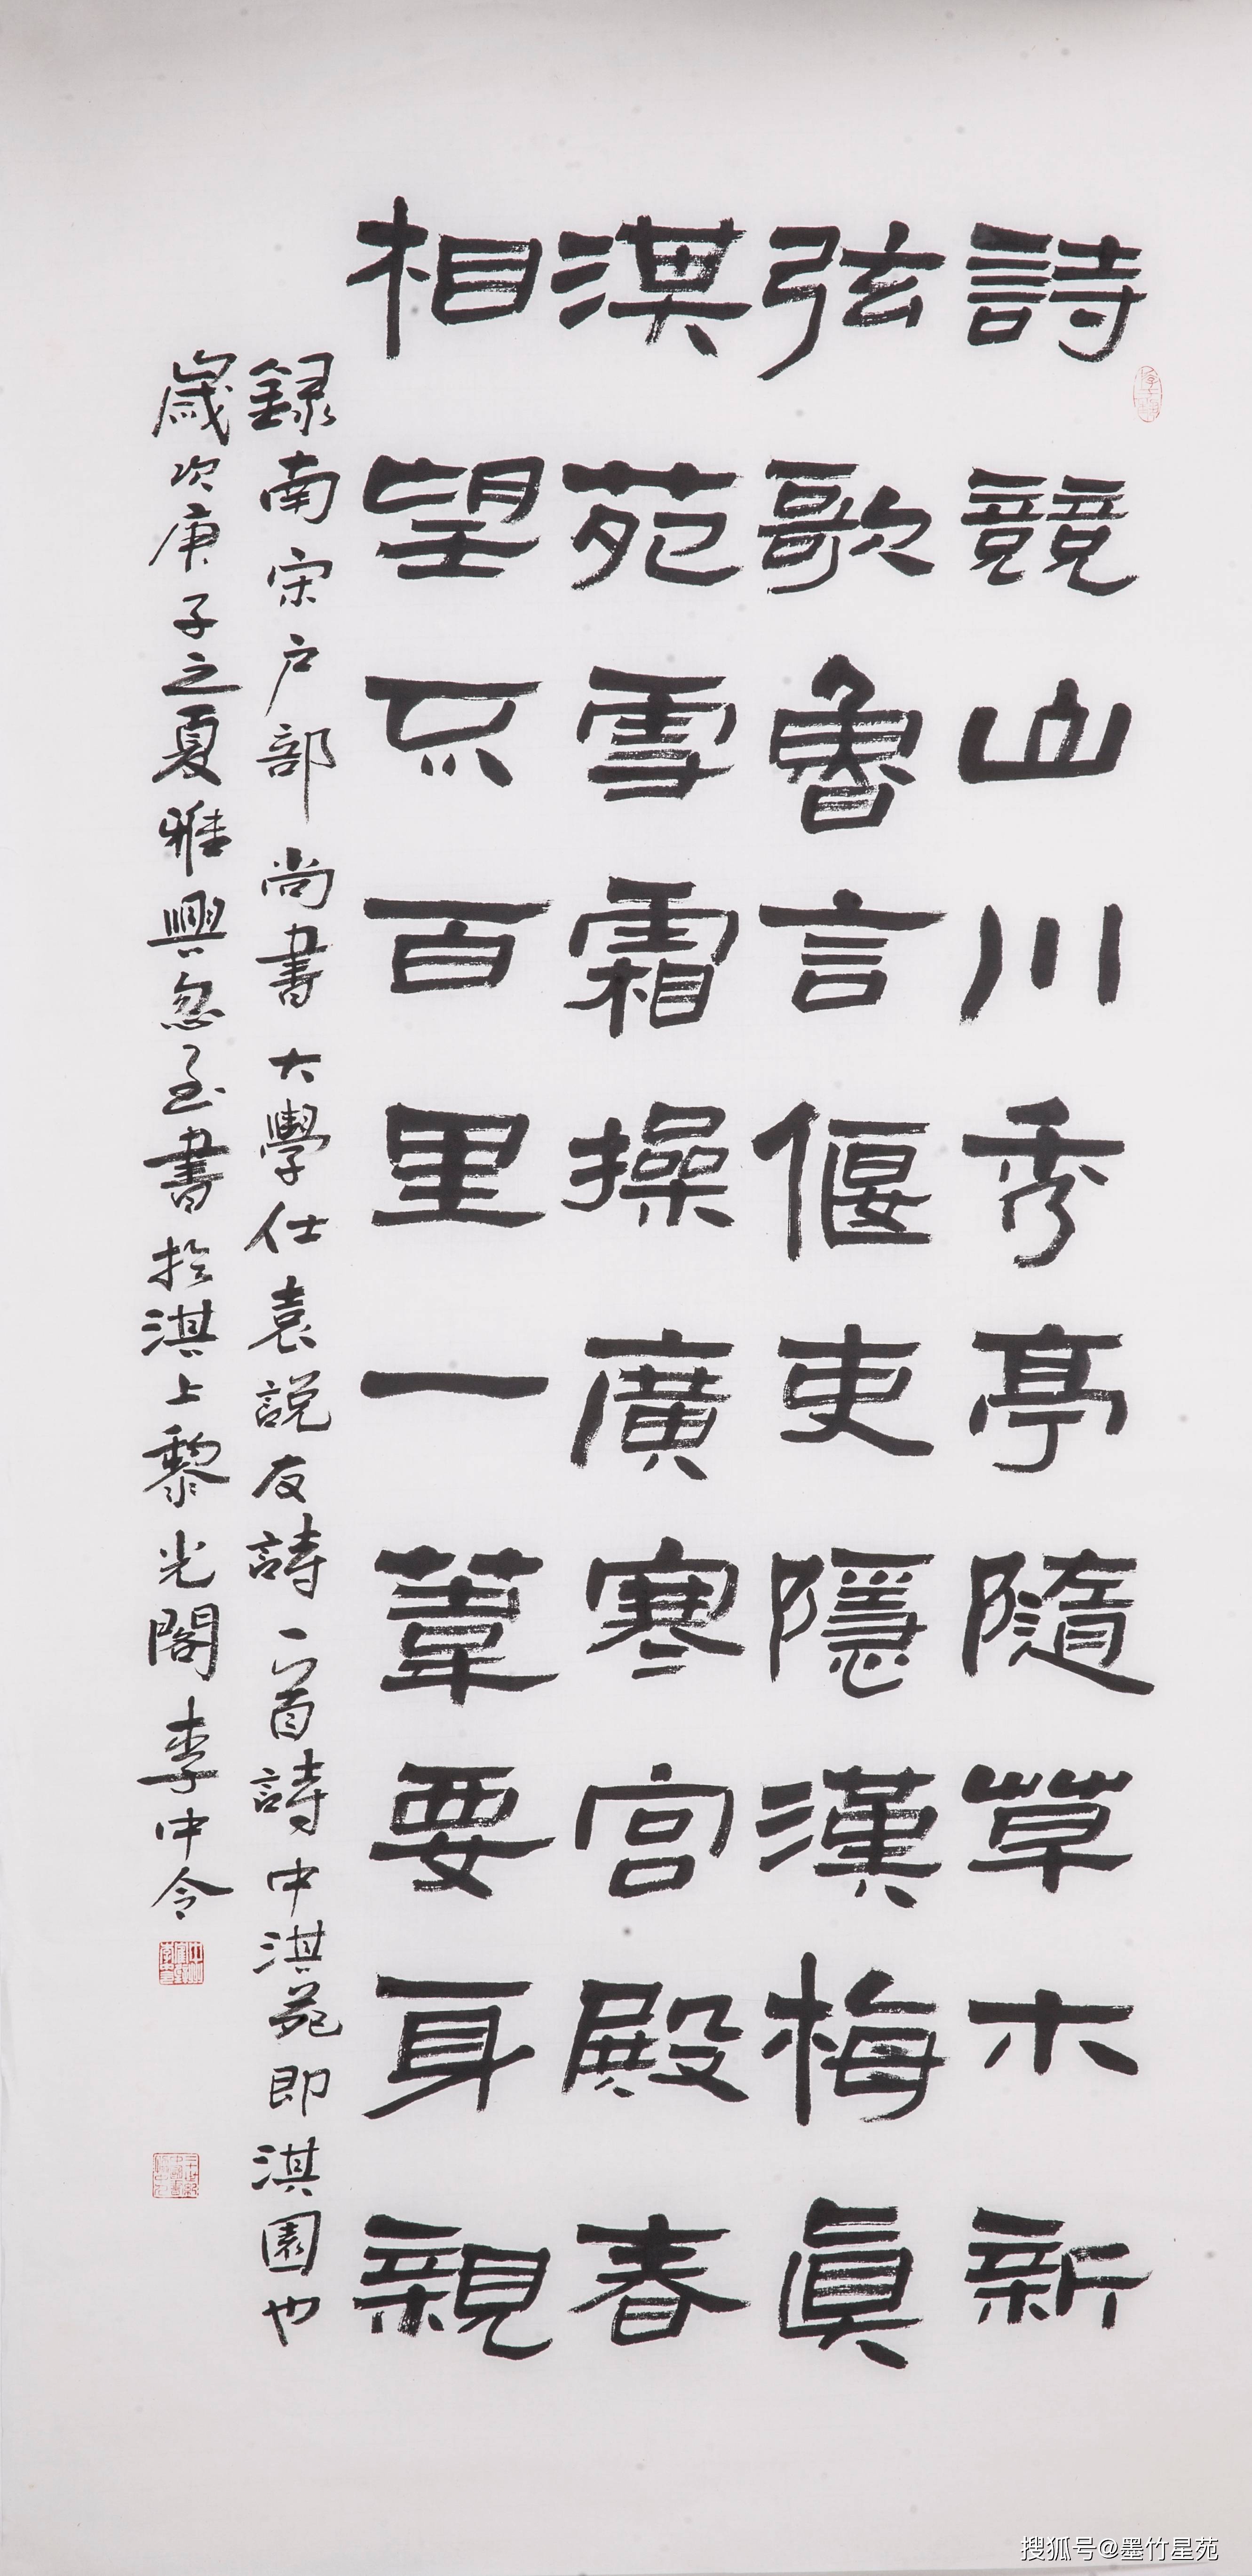 詩競山川秀亭隨草木新
弦歌魯言偃吏隱漢梅眞
淇苑雪霜操廣寒宮殿春
相望只百里一葦要身親
録南宋户部尚書大學仕袁説友詩一首詩中淇苑即淇園也
歲次庚子之夏雅興忽至書於淇上黎光閣李中令
搜狐号@墨竹星苑